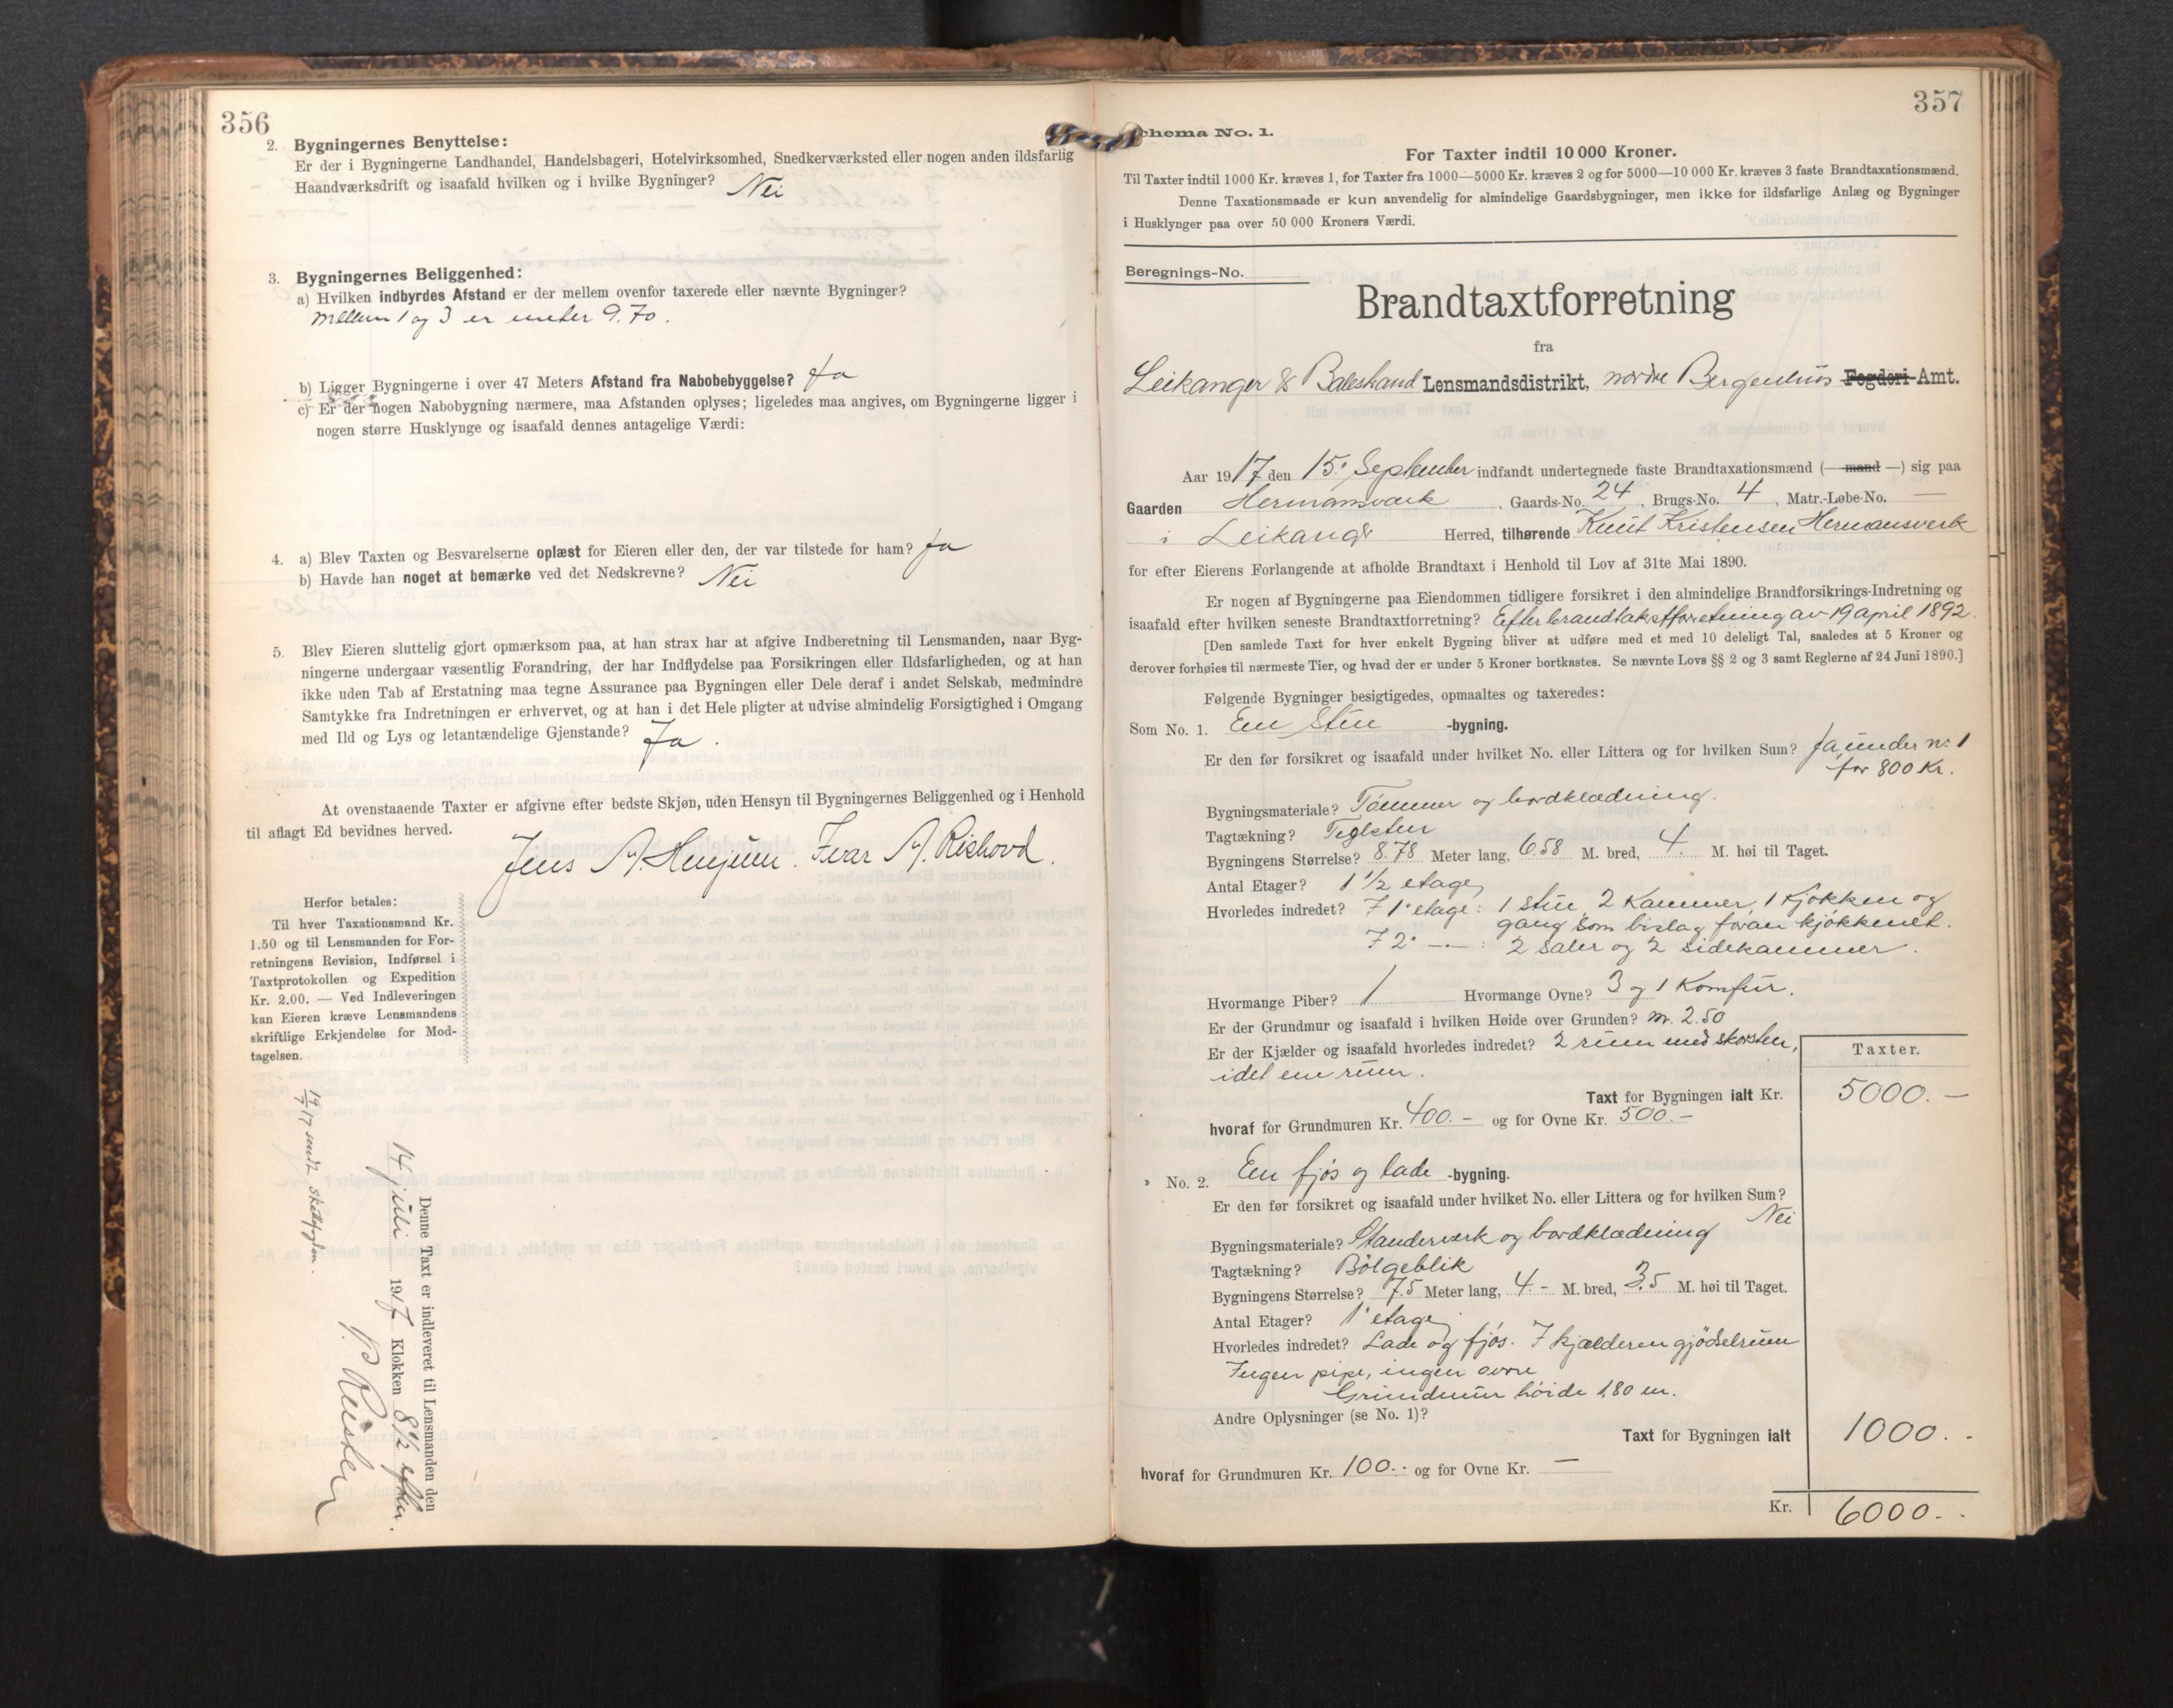 356
2. Bygningernes Benyttelse:
Er der i Bygningerne Landhandel, Handelsbageri, Hotelvirksomhed, Snedkerværksted eller nogen anden ildsfarlig
Haandværksdrift og isaafald hvilken og i hvilke Bygninger? Nei
3. Bygningernes Beliggenhed:
a) Hvilken indbyrdes Afstand er der mellem ovenfor taxerede eller nævnte Bygninger?
mellem 1 og 3 er meter 9.70.
b) Ligger Bygningerne i over 47 Meters Afstand fra Nabobebyggelse? Ja
c) Er der nogen Nabobygning nærmere, maa Afstanden oplyses; ligeledes maa angives, om Bygningerne ligger i
nogen større Husklynge og isaafald dennes antagelige Værdi:
4. a) Blev Taxten og Besvarelserne oplæst for Eieren eller den, der var tilstede for ham? Ja
b) Havde han noget at bemærke ved det Nedskrevne? Nei
5. Blev Eieren sluttelig gjort opmærksom paa, at han strax har at afgive Indberetning til Lensmanden, naar Byg-
ningerne undergaar væsentlig Forandring, der har Indflydelse paa Forsikringen eller Ildsfarligheden, og at han
ikke uden Tab af Erstatning maa tegne Assurance paa Bygningen eller Dele deraf i andet Selskab, medmindre
Samtykke fra Indretningen er erhvervet, og at han i det Hele pligter at udvise almindelig Forsigtighed i Omgang
med Ild og Lys og letantændelige Gjenstande? Ja.
At ovenstaaende Taxter er afgivne efter bedste Skjøn, uden Hensyn til Bygningernes Beliggenhed og i Henhold
til aflagt Ed bevidnes herved.
Jens A. Henjum. Ivar A. Rishovd.
Herfor betales:
Til hver Taxationsmand Kr.
1.50 og til Lensmanden for For-
retningens Revision, Indførsel i
Taxtprotokollen og Expedition
Kr. 2.00. — Ved Indleveringen
kan Eieren kræve Lensmandens
skriftlige Erkjendelse for Mod-
tagelsen.
Denne Taxt er indleveret til Lensmanden den
14 juli 1917 Klokken 8½ efter.
19/7 17 sendt
357
Schema No. 1.
For Taxter indtil 10 000 Kroner.
Til Taxter indtil 1000 Kr. kræves 1, for Taxter fra 1000—5000 Kr. kræves 2 og for 5000—10 000 Kr. kræves 3 faste Brandtaxationsmænd.
Denne Taxationsmaade er kun anvendelig for almindelige Gaardsbygninger, men ikke for ildsfarlige Anlæg og Bygninger
i Husklynger paa over 50 000 Kroners Værdi.
Beregnings-No.
Brandtaxtforretning
fra
Leikanger & Balestrand Lensmandsdistrikt, nordre Bergenhus Fogderi-Amt.
Aar 1917 den 15. September indfandt undertegnede faste Brandtaxationsmænd (— mand —) sig paa
Gaarden Hermansverk, Gaards-No. 24, Brugs-No. 4, Matr.-Løbe-No. —
i Leikanger Herred, tilhørende Knut Kristensen Hermansverk
for efter Eierens Forlangende at afholde Brandtaxt i Henhold til Lov af 31te Mai 1890.
Er nogen af Bygningerne paa Eiendommen tidligere forsikret i den almindelige Brandforsikrings-Indretning og
isaafald efter hvilken seneste Brandtaxtforretning? Efter brandtakstforretning av 19 april 1892.
[Den samlede Taxt for hver enkelt Bygning bliver at udføre med et med 10 deleligt Tal, saaledes at 5 Kroner og
derover forhøies til nærmeste Tier, og hvad der er under 5 Kroner bortkastes. Se nævnte Lovs §§ 2 og 3 samt Reglerne af 24 Juni 1890.]
Følgende Bygninger besigtigedes, opmaaltes og taxeredes:
Som No. 1. En stue -bygning.
Er den før forsikret og isaafald under hvilket No. eller Littera og for hvilken Sum? Ja, under no 1
for 800 Kr.
Bygningsmateriale? Tømmer og bordklædning.
Tagtækning? Teglsten
Bygningens Størrelse? 8.78 Meter lang, 6.58 M. bred, 4. M. høi til Taget.
Antal Etager? 1½ etage,
Hvorledes indredet? I 1. etage: 1 stue, 2 Kammer, 1 Kjøkken og
gang som bislag foran kjøkkenet.
I 2. —„— : 2 saler og 2 sidekammer.
Hvormange Piber? 1 Hvormange Ovne? 3 og 1 Komfur.
Er der Grundmur og isaafald i hvilken Høide over Grunden? m. 2.50
Er der Kjælder og isaafald hvorledes indredet? 2 rum med skorsten,
i det ene rum.
Taxter.
Taxt for Bygningen ialt Kr. 5000.—
hvoraf for Grundmuren Kr. 400.- og for Ovne Kr. 500.-
» No. 2. En fjøs og lade -bygning.
Er den før forsikret og isaafald under hvilket No. eller Littera og for hvilken Sum?
Nei
Bygningsmateriale? Standerverk og bordklædning
Tagtækning? Bølgeblik
Bygningens Størrelse? 7.5 Meter lang, 4.- M. bred, 3.5 M. høi til Taget.
Antal Etager? 1. etage,
Hvorledes indredet? Lade og fjøs. I kjælderen gjødselrum
Ingen pipe, ingen ovne
Grundmur høide 1,80 m.
Andre Oplysninger (se No. 1)?
Taxt for Bygningen ialt 1000.-
hvoraf for Grundmuren Kr. 100.- og for Ovne Kr. —
Kr. 6000.-